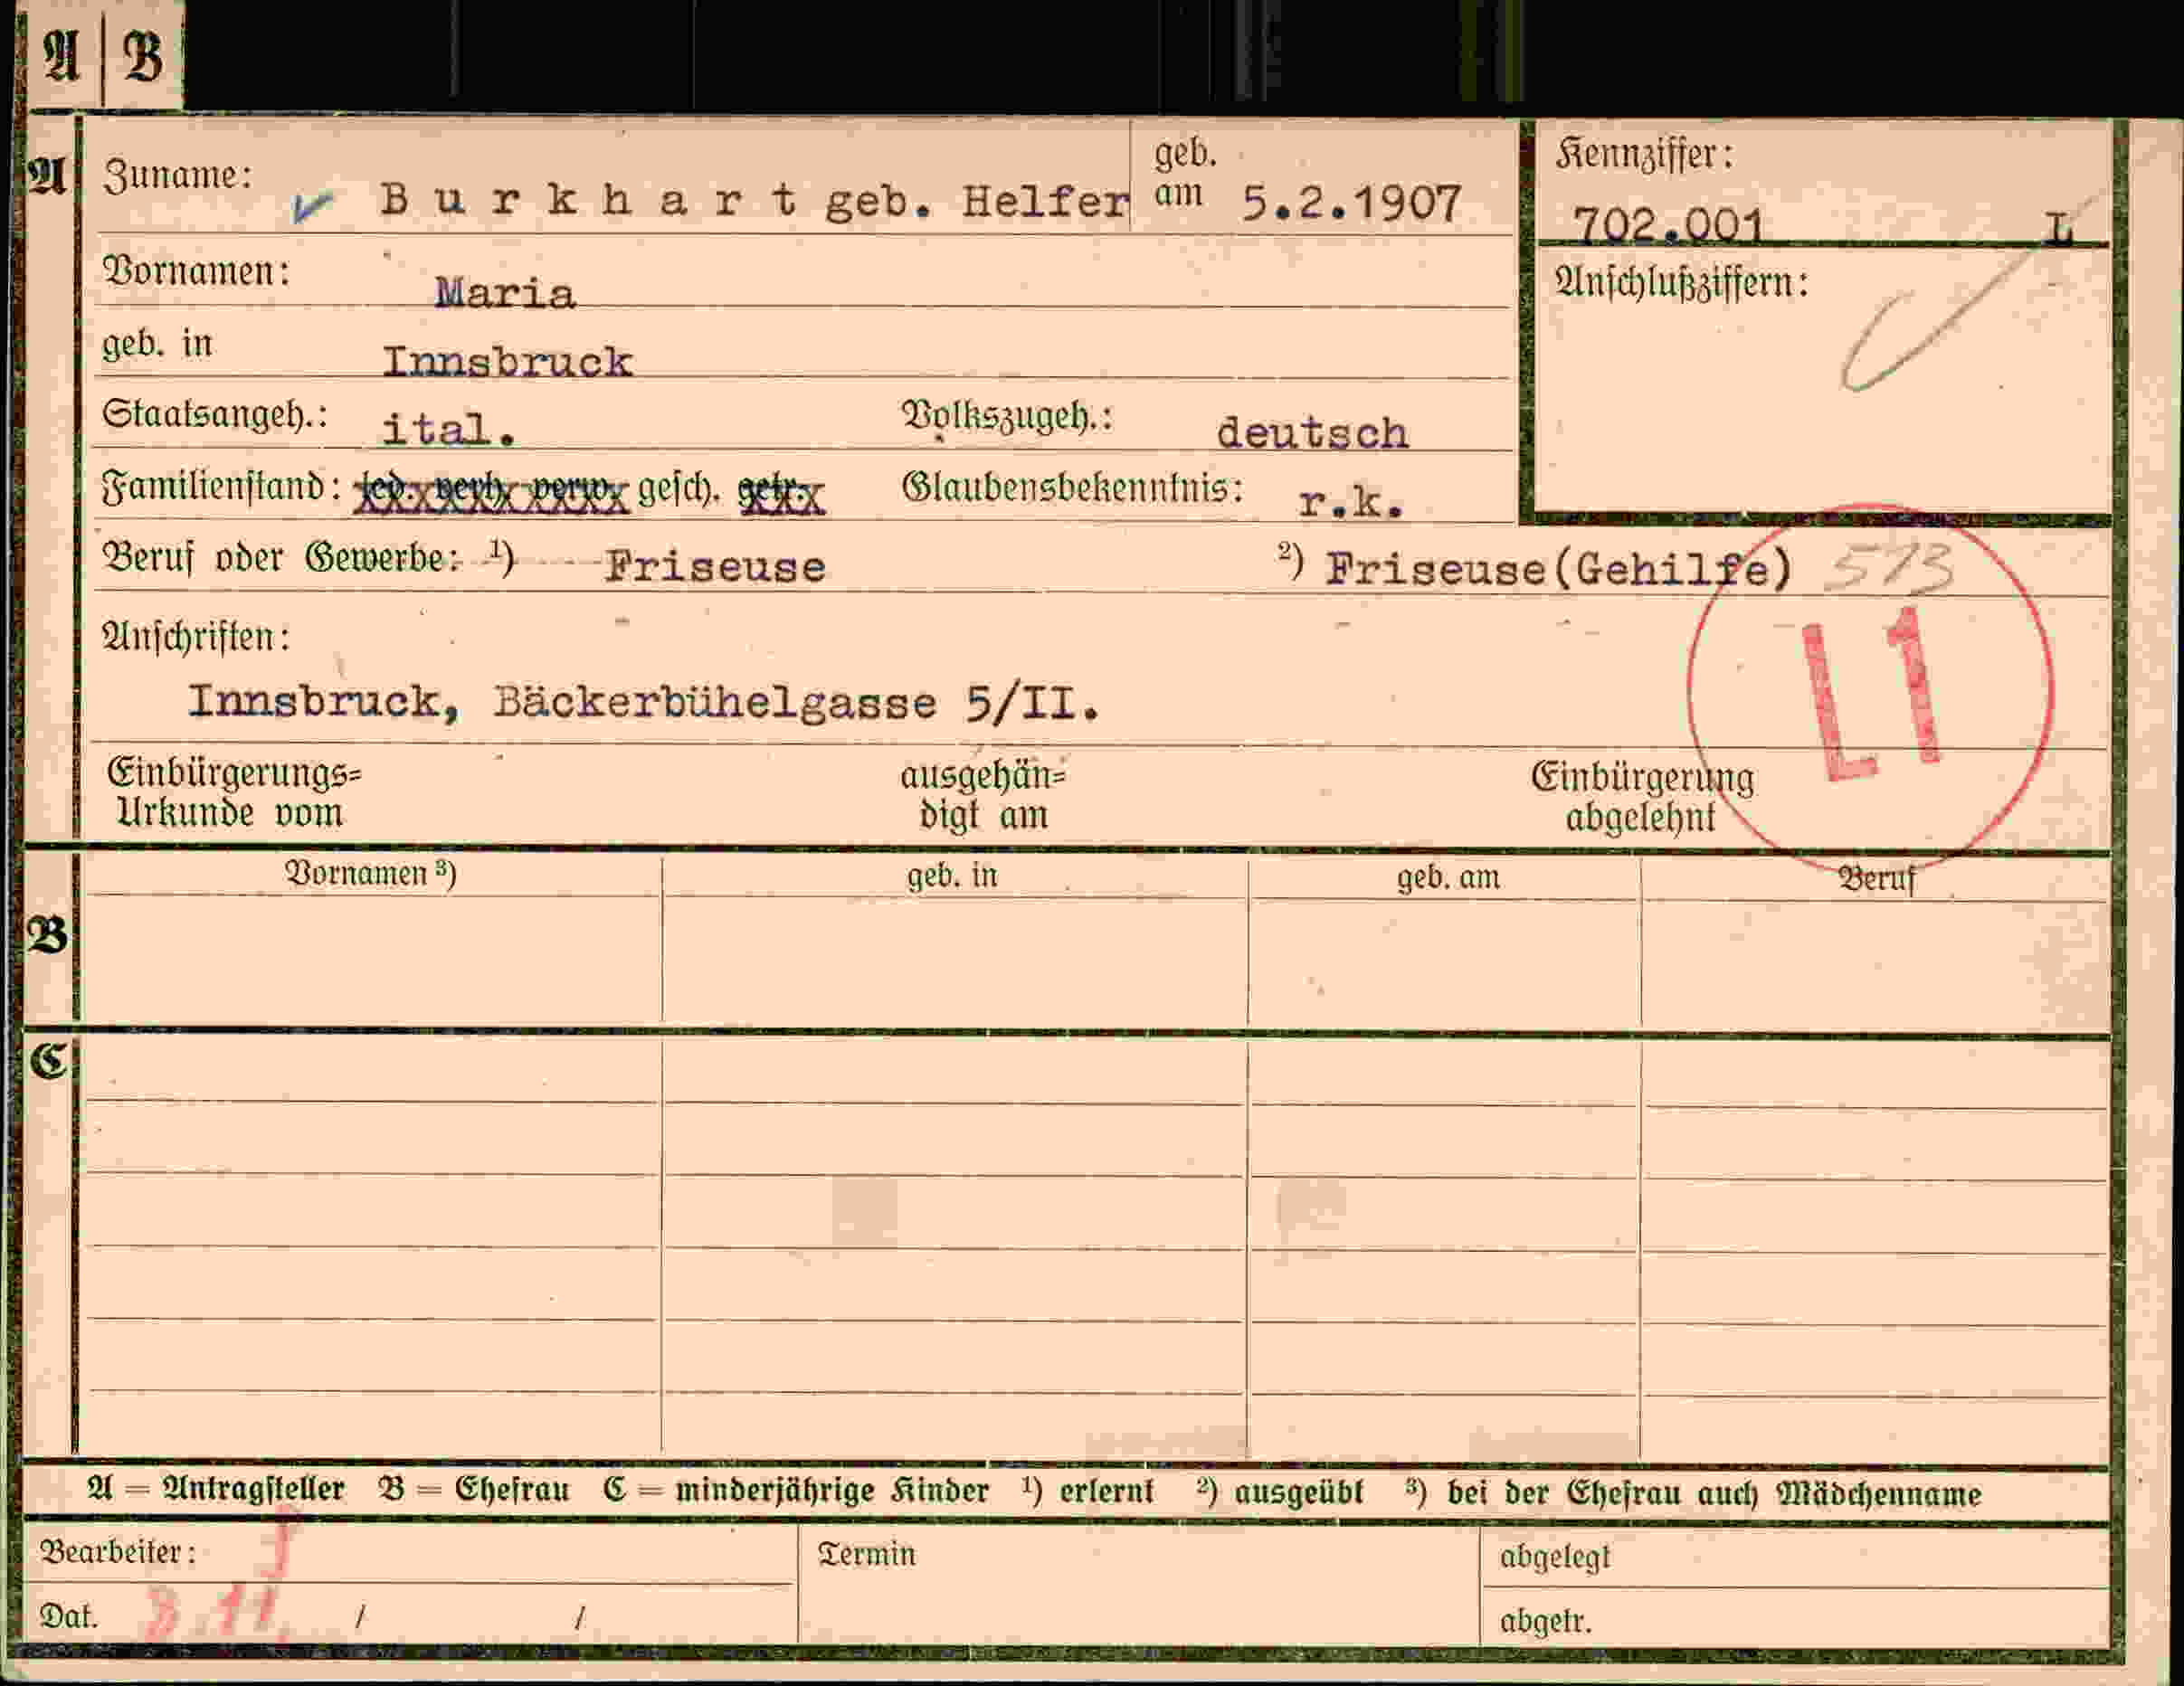 A B
A
Zuname: B u r k h a r t geb. Helfer
geb. am 5.2.1907
Kennziffer:
702.001 L
Vornamen: Maria
Anschlußziffern:
geb. in Innsbruck
Staatsangeh.: ital. Volkszugeh.: deutsch
Familienstand: led. verh. verw. gesch. getr. Glaubensbekenntnis: r.k.
Beruf oder Gewerbe: 1) Friseuse 2) Friseuse(Gehilfe) 573
Anschriften:
L1
Innsbruck, Bäckerbühelgasse 5/II.
Einbürgerungs= ausgehän= Einbürgerung
Urkunde vom digt am abgelehnt
B
Vornamen 3) geb. in geb. am Beruf
C
A = Antragsteller B = Ehefrau C = minderjährige Kinder 1) erlernt 2) ausgeübt 3) bei der Ehefrau auch Mädchenname
Bearbeiter: Termin abgelegt
Dat. / / abgetr.